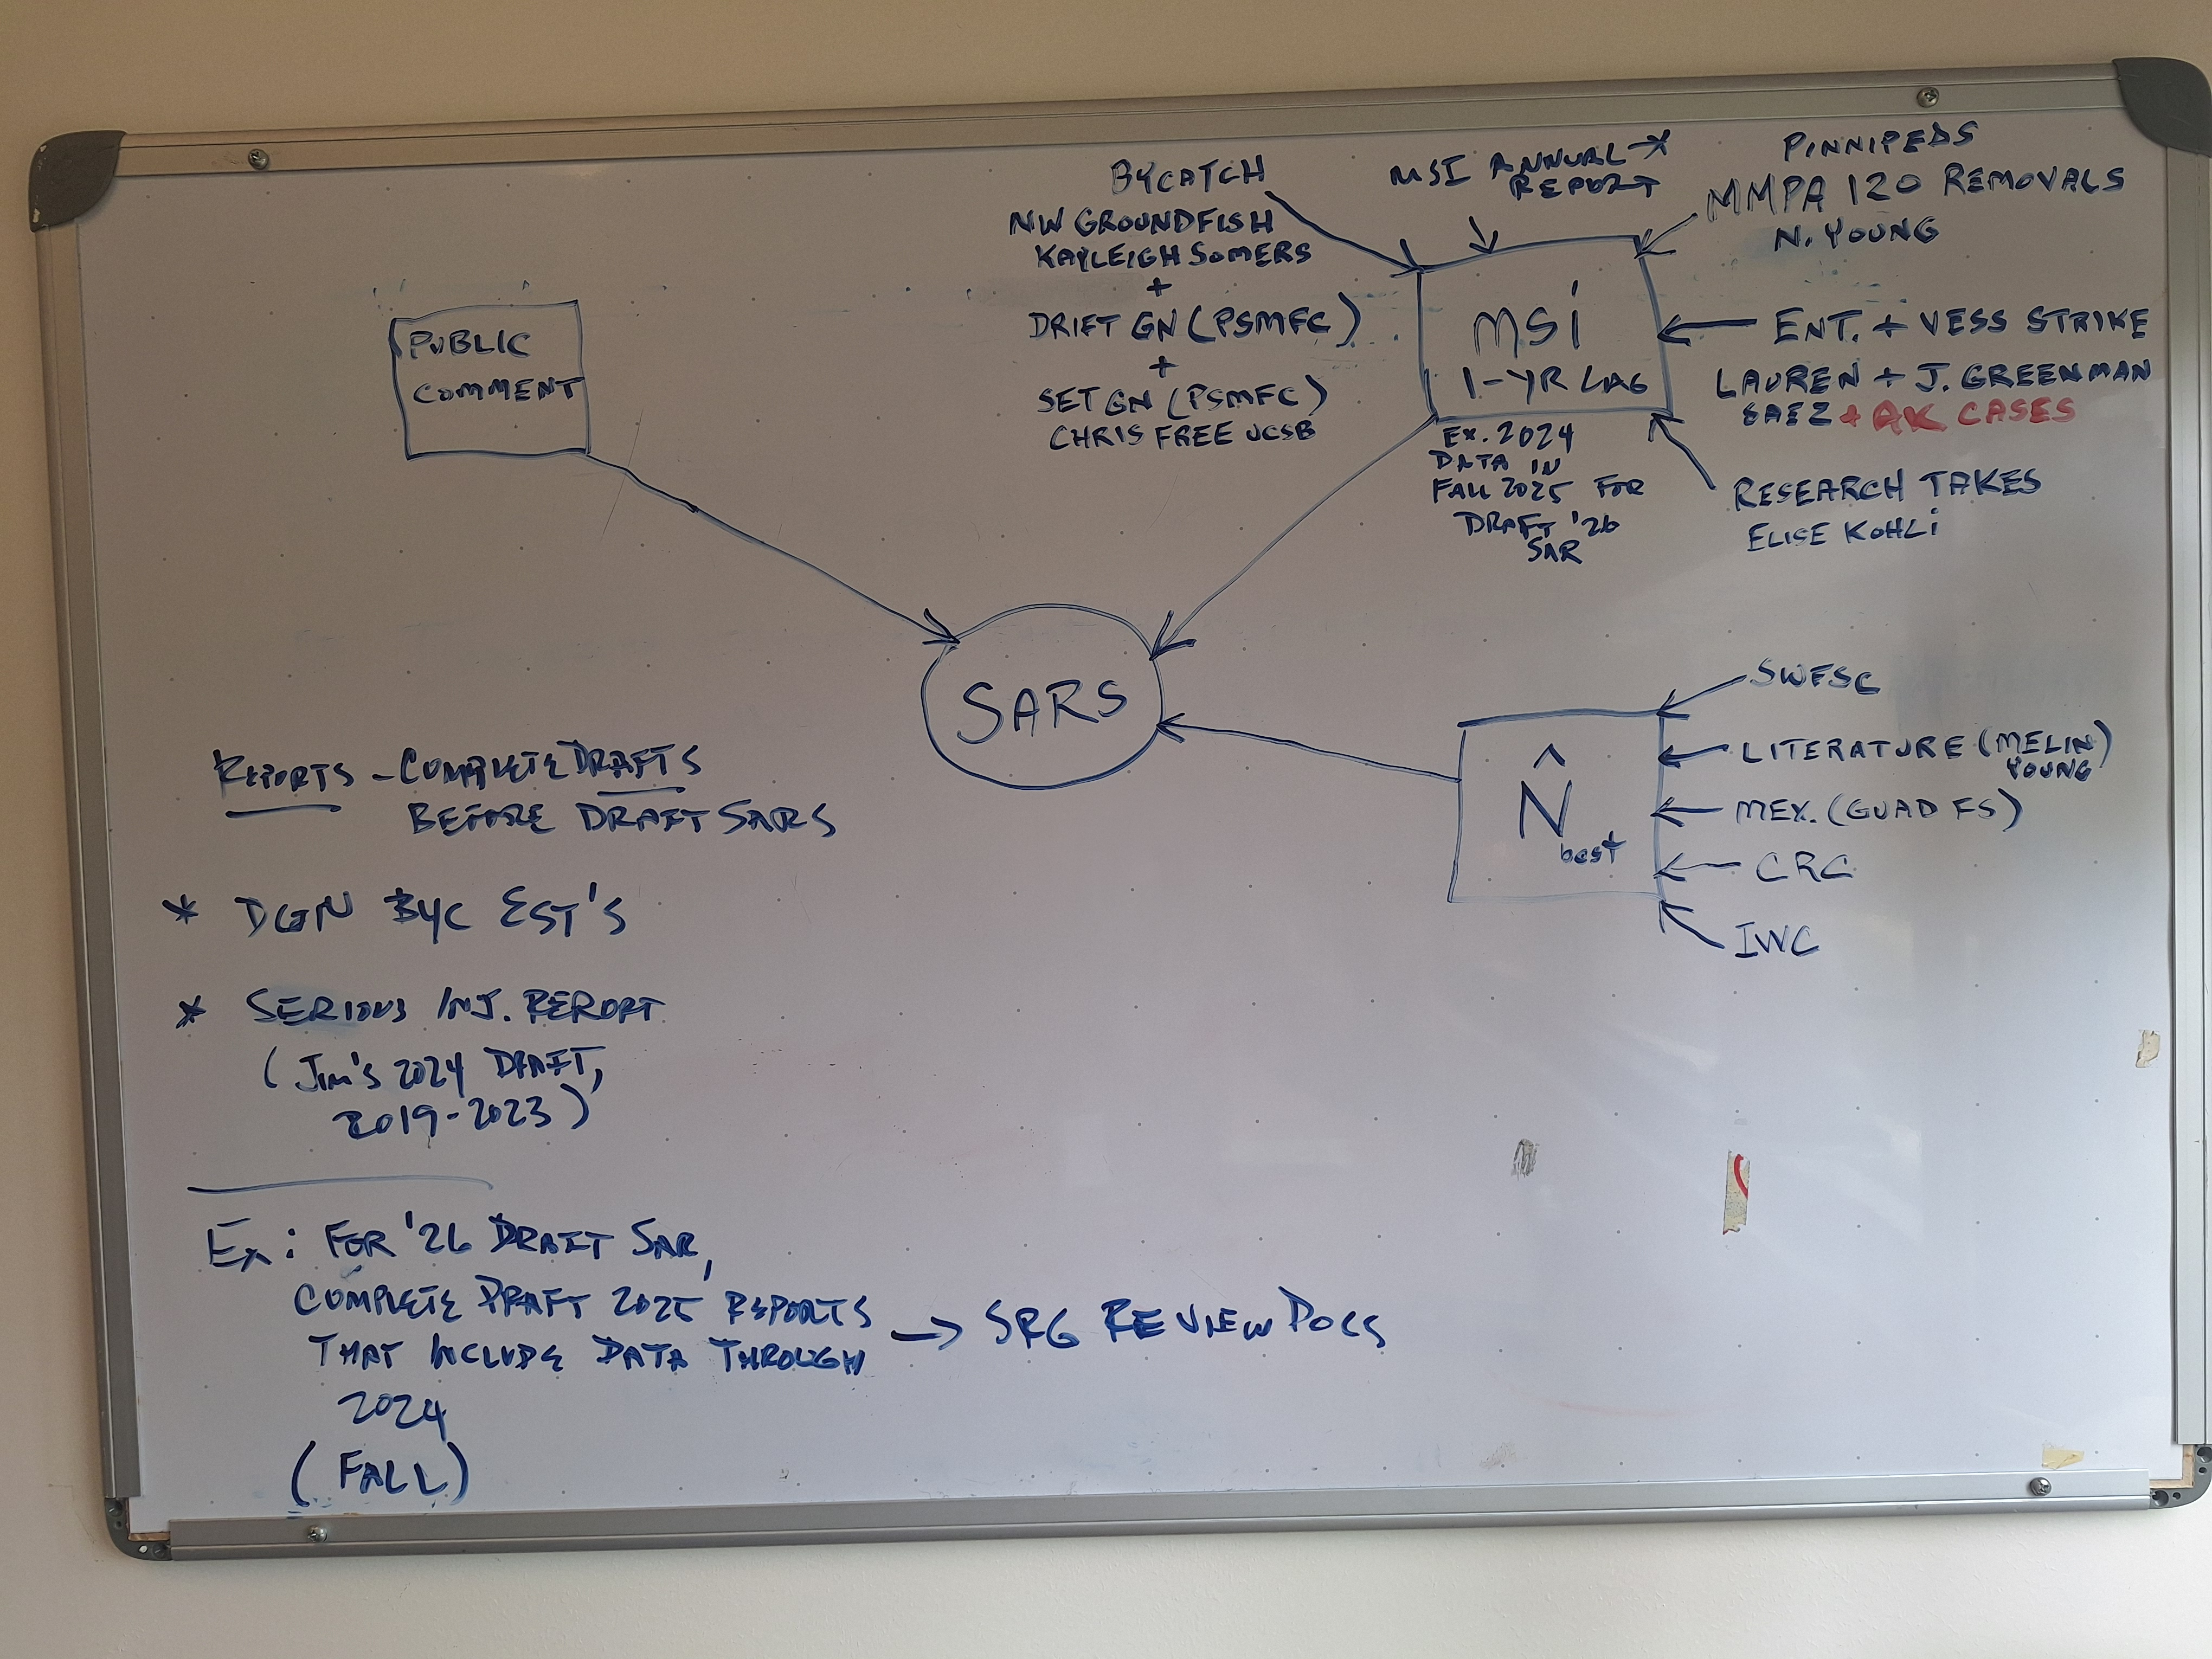 BYCATCH
NW GROUNDFISH
KAYLEIGH SOMERS
+
DRIFT GN (PSMFC)
+
SET GN (PSMFC)
CHRIS FREE UCSB
MSI ANNUAL *
REPORT
PINNIPEDS
MMPA 120 REMOVALS
N. YOUNG
MSI
1-YR LAG
EX. 2024
DATA IN
FALL 2025 FOR
DRAFT '26
SAR
ENT. + VESS STRIKE
LAUREN + J. GREENMAN
SAEZ + AK CASES
RESEARCH TAKES
ELISE KOHLI
PUBLIC
COMMENT
SARS
N̂
best
SWFSC
LITERATURE (MELIN)
YOUNG
MEX. (GUAD FS)
CRC
IWC
REPORTS - COMPLETE DRAFTS
BEFORE DRAFT SARS
* DGN BYC EST'S
* SERIOUS INJ. REPORT
(JIM'S 2024 DRAFT,
2019-2023)
EX: FOR '26 DRAFT SAR,
COMPLETE DRAFT 2025 REPORTS
THAT INCLUDE DATA THROUGH
2024
(FALL)
→ SRG REVIEW DOCS